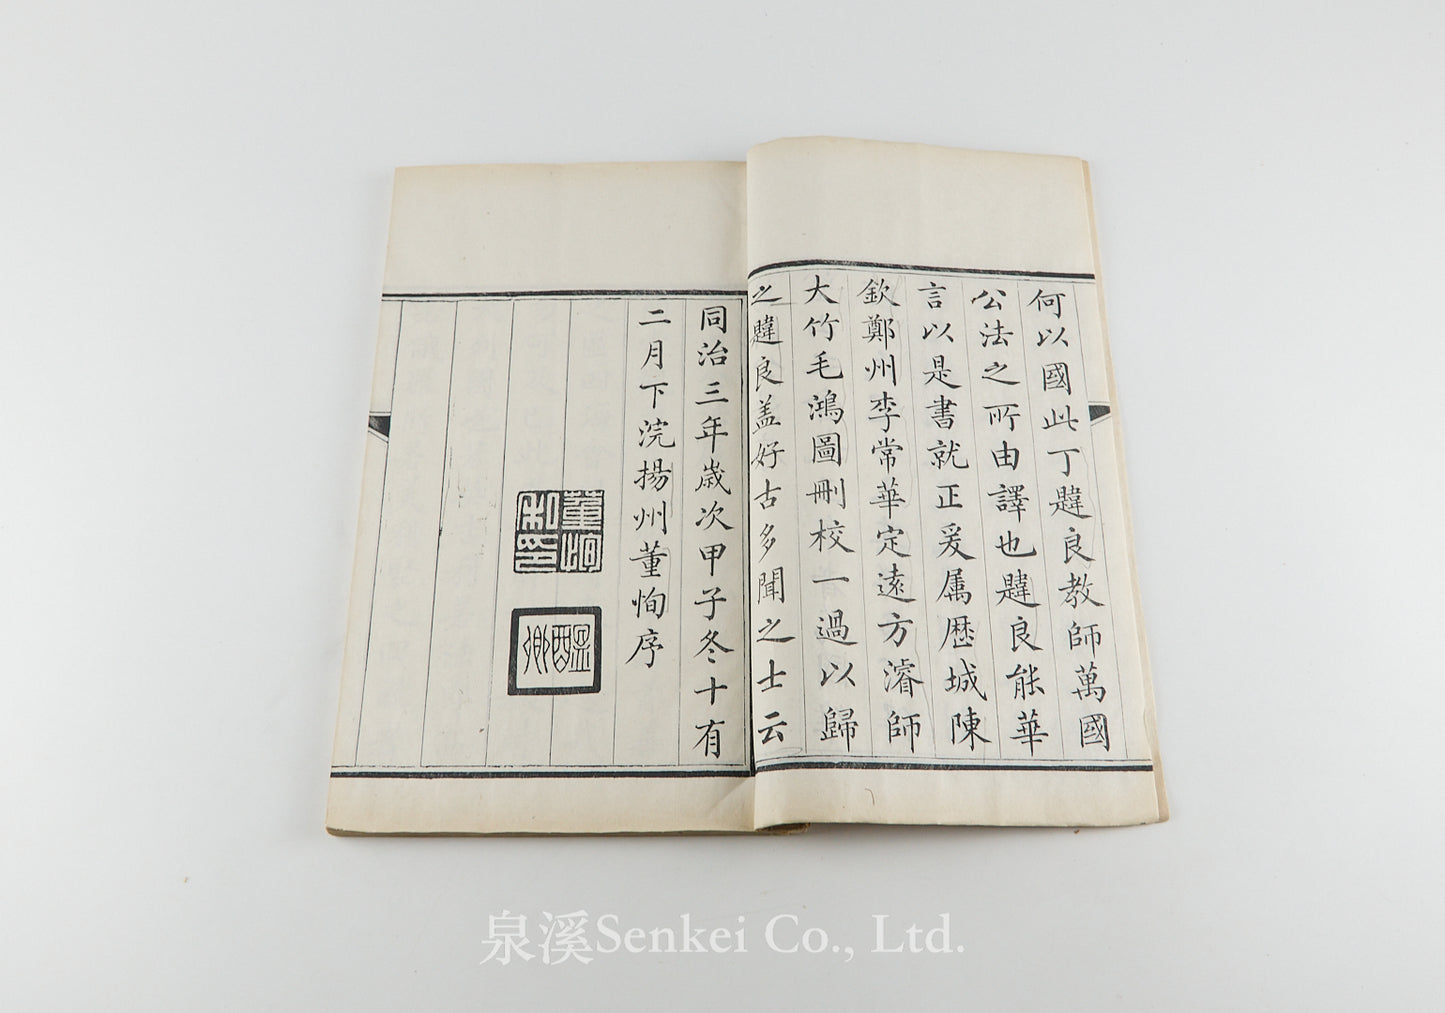 何以國此丁韙良教師萬國
公法之所由譯也韙良能華
言以是書就正爰属歷城陳
欽鄭州李常華定遠方濬師
大竹毛鴻圖刪校一過以歸
之韙良盖好古多聞之士云
同治三年歲次甲子冬十有
二月下浣揚州董恂序
董恂私印
醞卿
泉溪Senkei Co., Ltd.